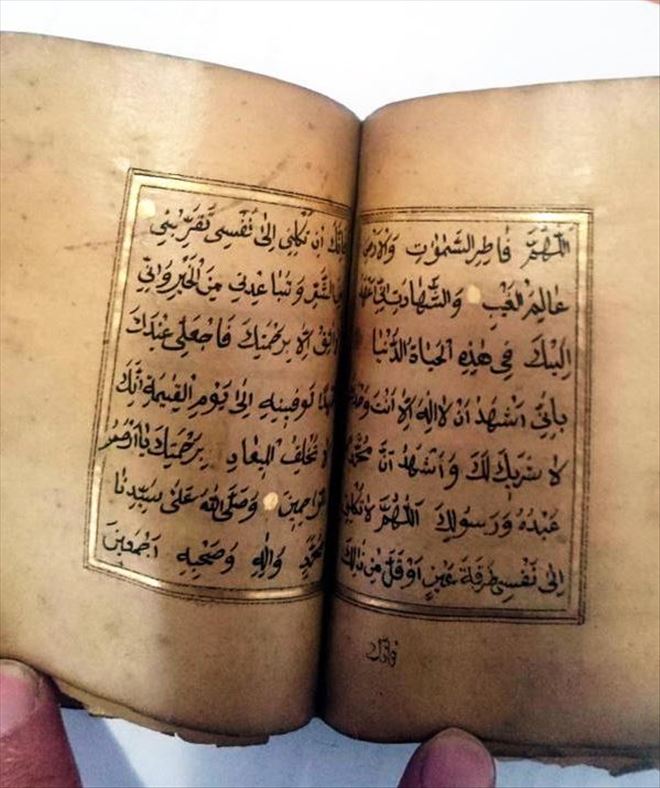 اَللّٰهُمَّ فَاطِرَ السَّمٰوٰتِ وَالْاَرْضِ
عَالِمَ الْغَيْبِ وَالشَّهَادَتِ اِنِّي اَعْهَدُ
اِلَيْكَ فِي هٰذِهِ الْحَيَاةِ الدُّنْيَا
بِاَنِّي اَشْهَدُ اَنْ لَا اِلٰهَ اِلَّا اَنْتَ وَحْدَكَ
لَا شَرِيكَ لَكَ وَاَشْهَدُ اَنَّ مُحَمَّدًا
عَبْدُكَ وَرَسُولُكَ اَللّٰهُمَّ لَا تَكِلْنِي
اِلٰى نَفْسِي طَرْفَةَ عَيْنٍ اَوْ اَقَلَّ مِنْ ذٰلِكَ
فَاِنَّكَ
فَاِنَّكَ اِنْ تَكِلْنِي اِلٰى نَفْسِي تُقَرِّبْنِي
مِنَ الشَّرِّ وَتُبَاعِدْنِي مِنَ الْخَيْرِ وَاِنِّي
لَا اَثِقُ اِلَّا بِرَحْمَتِكَ فَاجْعَلْ لِي عِنْدَكَ
عَهْدًا تُوَفِّينِيهِ اِلٰى يَوْمِ الْقِيٰمَةِ اِنَّكَ
لَا تُخْلِفُ الْمِيعَادَ بِرَحْمَتِكَ يَا اَرْحَمَ
الرَّاحِمِينَ وَصَلَّى اللّٰهُ عَلٰى سَيِّدِنَا
مُحَمَّدٍ وَاٰلِهِ وَصَحْبِهِ اَجْمَعِينَ